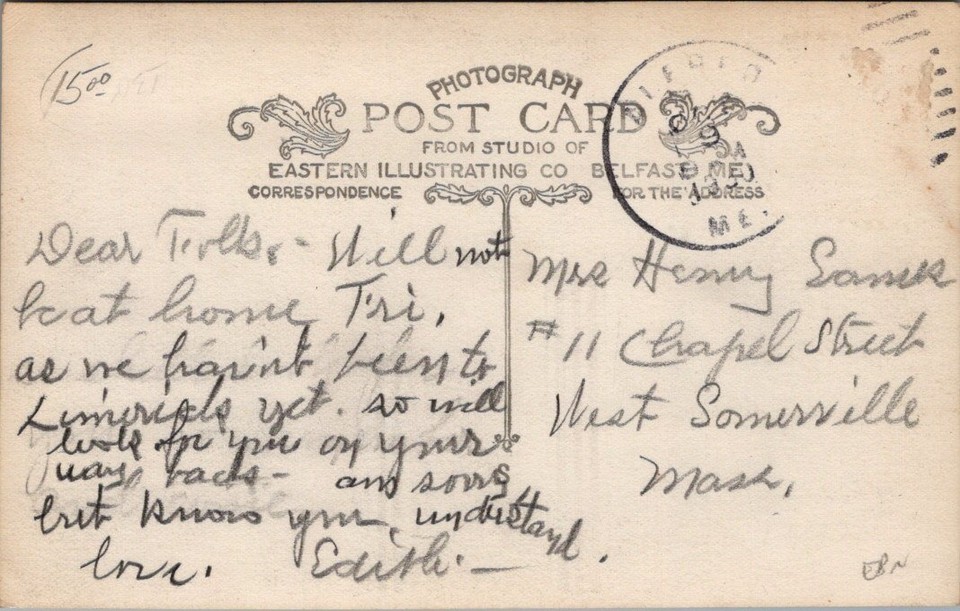 15.00
PHOTOGRAPH
POST CARD
FROM STUDIO OF
EASTERN ILLUSTRATING CO BELFAST, ME.
CORRESPONDENCE
FOR THE ADDRESS
ME.
Dear Folks,- Will not
be at home Fri,
as we hav'nt been to
yet. so will
look for you on your
way back - am sorry
but know you understand.
love. Edith. -
Mrs Henry
#11 Chapel Street
West Somerville
Mass,